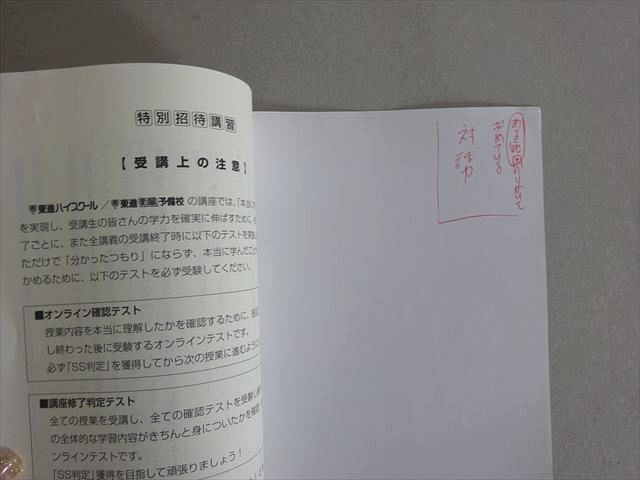 特別招待講習
【受講上の注意】
東進ハイスクール/東進衛星予備校の講座では、「本当に
を実現し、受講生の皆さんの学力を確実に伸ばすために、
了ごとに、また全講義の受講終了時に以下のテストを実施し
ただけで「分かったつもり」にならず、本当に学んだこと
かめるために、以下のテストを必ず受験してください。
■オンライン確認テスト
授業内容を本当に理解したかを確認するために、各
し終わった後に受験するオンラインテストです。
必ず「SS判定」を獲得してから次の授業に進むように
■講座修了判定テスト
全ての授業を受講し、全ての確認テストを受験し
の全体的な学習内容がきちんと身についたかを確認
ンラインテストです。
「SS判定」獲得を目指して頑張りましょう!
求めている
対話力